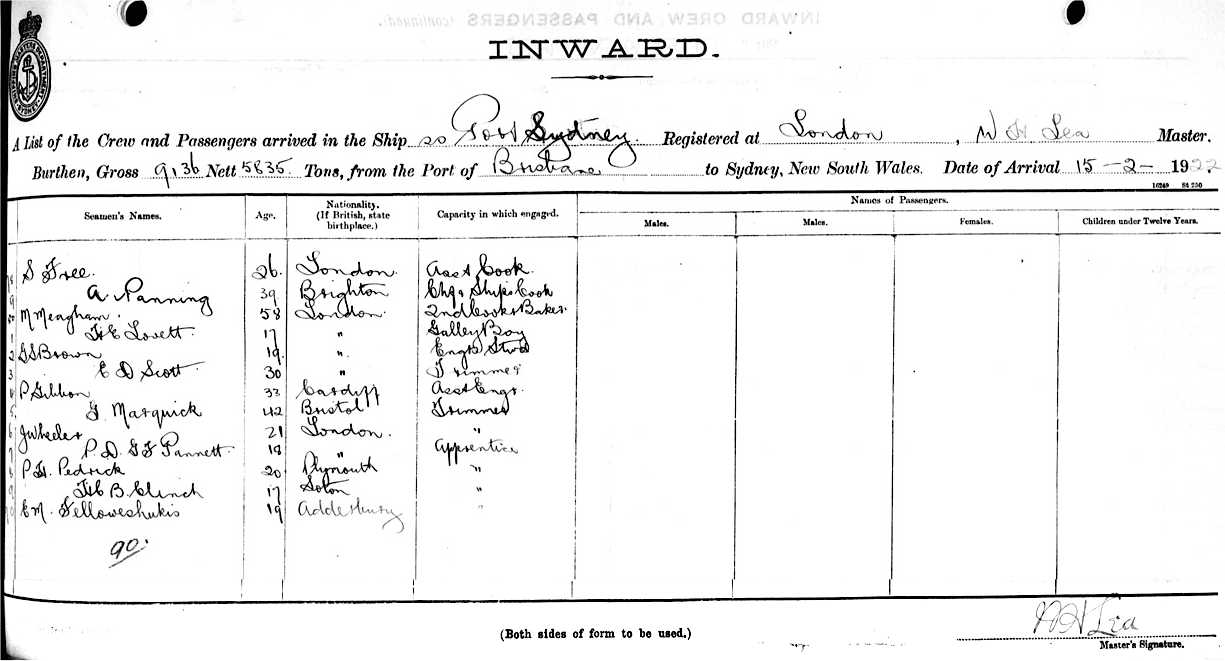 INWARD.
A List of the Crew and Passengers arrived in the Ship SS Port Sydney Registered at London, W H Lea Master.
Burthen, Gross 9136 Nett 5835 Tons, from the Port of Brisbane to Sydney, New South Wales. Date of Arrival 15-2-1922
16249 84 250
Seamen's Names. Age. Nationality. (If British, state birthplace.) Capacity in which engaged. Names of Passengers.
Males. Males. Females. Children under Twelve Years.
S Free. 26. London. Asst Cook.
9 A. Panning 39 Brighton Chf & Ships Cook
M Meagham. 58 London. 2nd Cook & Baker.
1 H E Lovett. 17 " Galley Boy
2 G S Brown 19. ". Engrs Stwd
3 E D Scott. 30 " Trimmer
4 P Gibbon 33 Cardiff Asst Engr.
5. Marquick 42 Bristol Trimmer
6 J Wheeler 21 London. "
7 P. D. G F Pannett. 18 " Apprentice
8 P H. Pedrick 20 Plymouth "
9 H B. Clinch 17 Soton "
E M. 19 Adderbury "
90.
W H Lea
(Both sides of form to be used.)
Master's Signature.